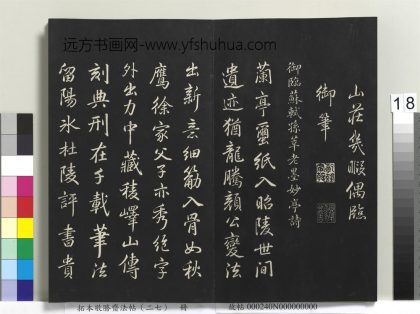 远方书画网-www.yfshuhua.com
山莊幾暇偶臨
御筆
御臨蘇軾孫莘老墨妙亭詩
蘭亭繭紙入昭陵世間
遺迹猶龍騰顏公變法
出新意細筋入骨如秋
鷹徐家父子亦秀絕字
外出力中藏稜嶧山傳
刻典刑在千載筆法
留陽冰杜陵評書貴
18
拓本敬勝齋法帖(二七) 冊
故帖 000240N000000000